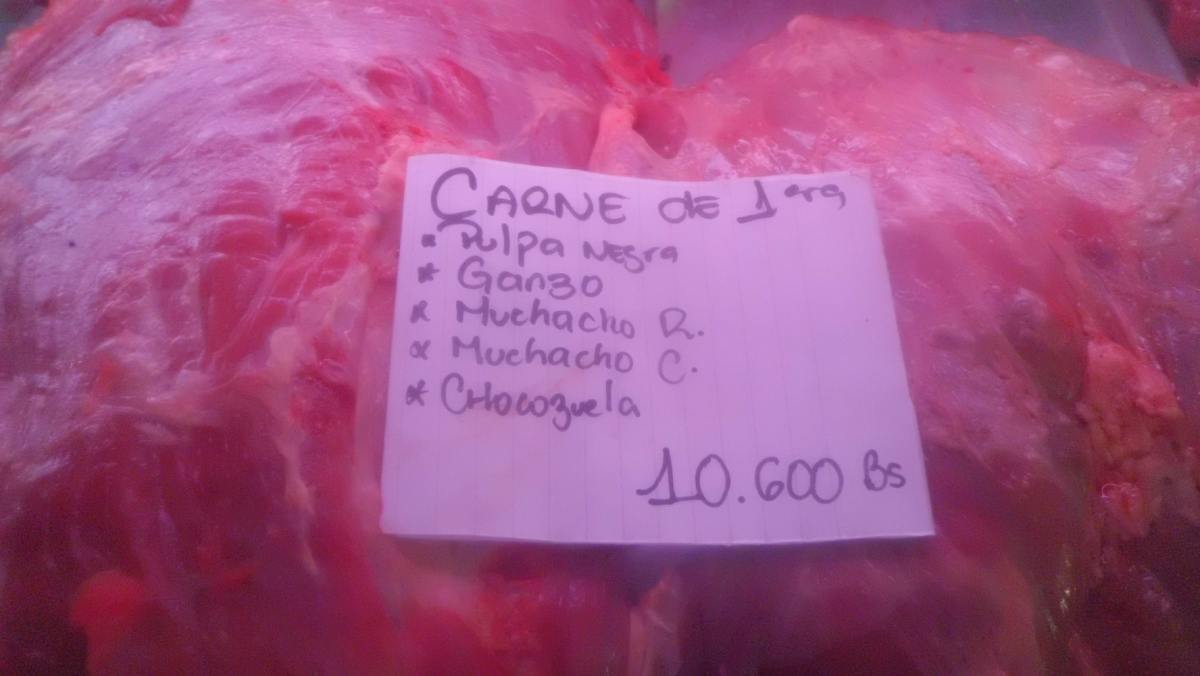 CARNE de 1era
* Pulpa Negra
* Ganzo
* Muchacho R.
* Muchacho C.
* CHocozuela
10.600 Bs